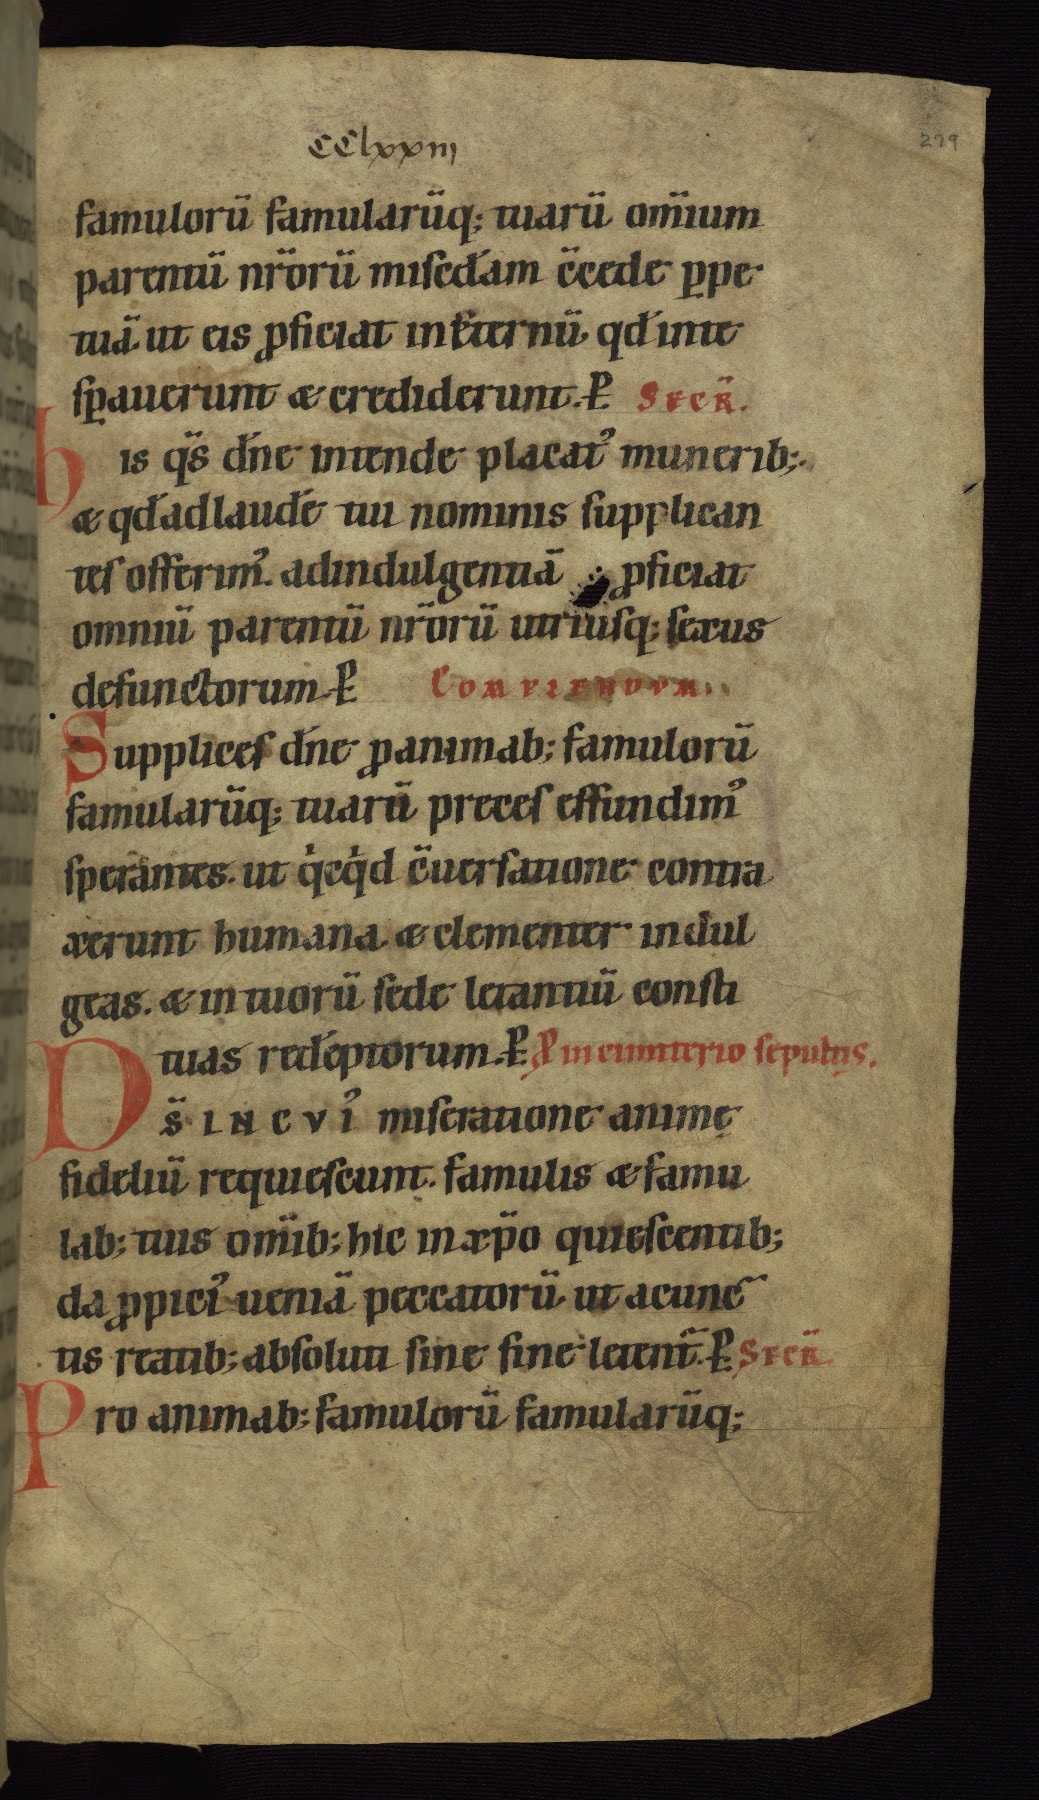 CClxxiii
279
famulorū famularūq; tuarū om̄ium
parentū nr̄orū misc̄dam c̄cede ꝑpe
tuā ut eis ꝓficiat in ęternū qd́ in te
sꝑauerunt & crediderunt. P̱ Secr̄.
his q̄s dńe intende placatꝰ munerib;
& qd́ ad laudē tui nominis supplican
tes offerimꝰ. ad indulgentiā ꝓficiat
omniū parentū nr̄orū utriusq; sexus
defunctorum. P̱ Complendum.
Supplices dńe ꝓ animab; famulorū
famularūq; tuarū preces effundimꝰ
sperantes. ut qͥcqͥd c̄uersatione contra
xerunt humana. & clementer indul
geas. & in tuorū sede letantiū consti
tuas red́emptorum. P̱ P̱ in cimiterio sepultis.
Ds̄ IN CVIꝰ miseratione animę
fideliū requiescunt. famulis & famu
lab; tuis om̄ib; hic in xp̄o quiescentib;
da ꝓpiciꝰ ueniā peccatorū ut a cunc
tis reatib; absoluti sine fine letent̄. P̱ Secr̄.
Pro animab; famulorū famularūq;